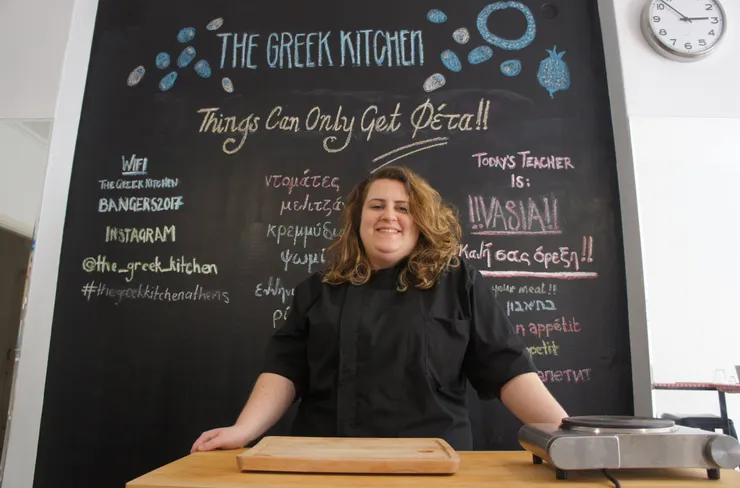 THE GREEK KITCHEN
Things Can Only Get Φέτα!!
WIFI
THE GREEK KITCHEN
BANGERS2017
INSTAGRAM
@the_greek_kitchen
#thegreekkitchenathens
ντομάτες
μελιτζάν
κρεμμύδι
ψωμί
ελλην
TODAY'S TEACHER
IS:
!!VASIA!!
Καλή σας όρεξη!!
your meal!!
בתיאבון
appétit